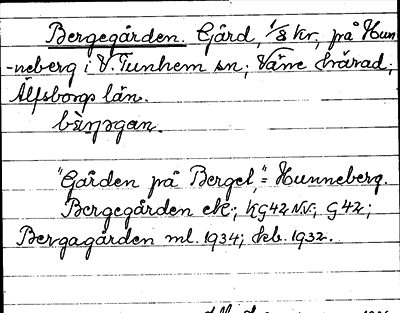 Bergegården. Gård, 1/8 kr, på Hun-
-neberg i V. Tunhem sn; Väne härad;
Älfsborgs län.
"Gården på Berget," = Hunneberg.
Bergegården ek; KG42NV; G42;
Bergagården ml. 1934; Jeb. 1932.